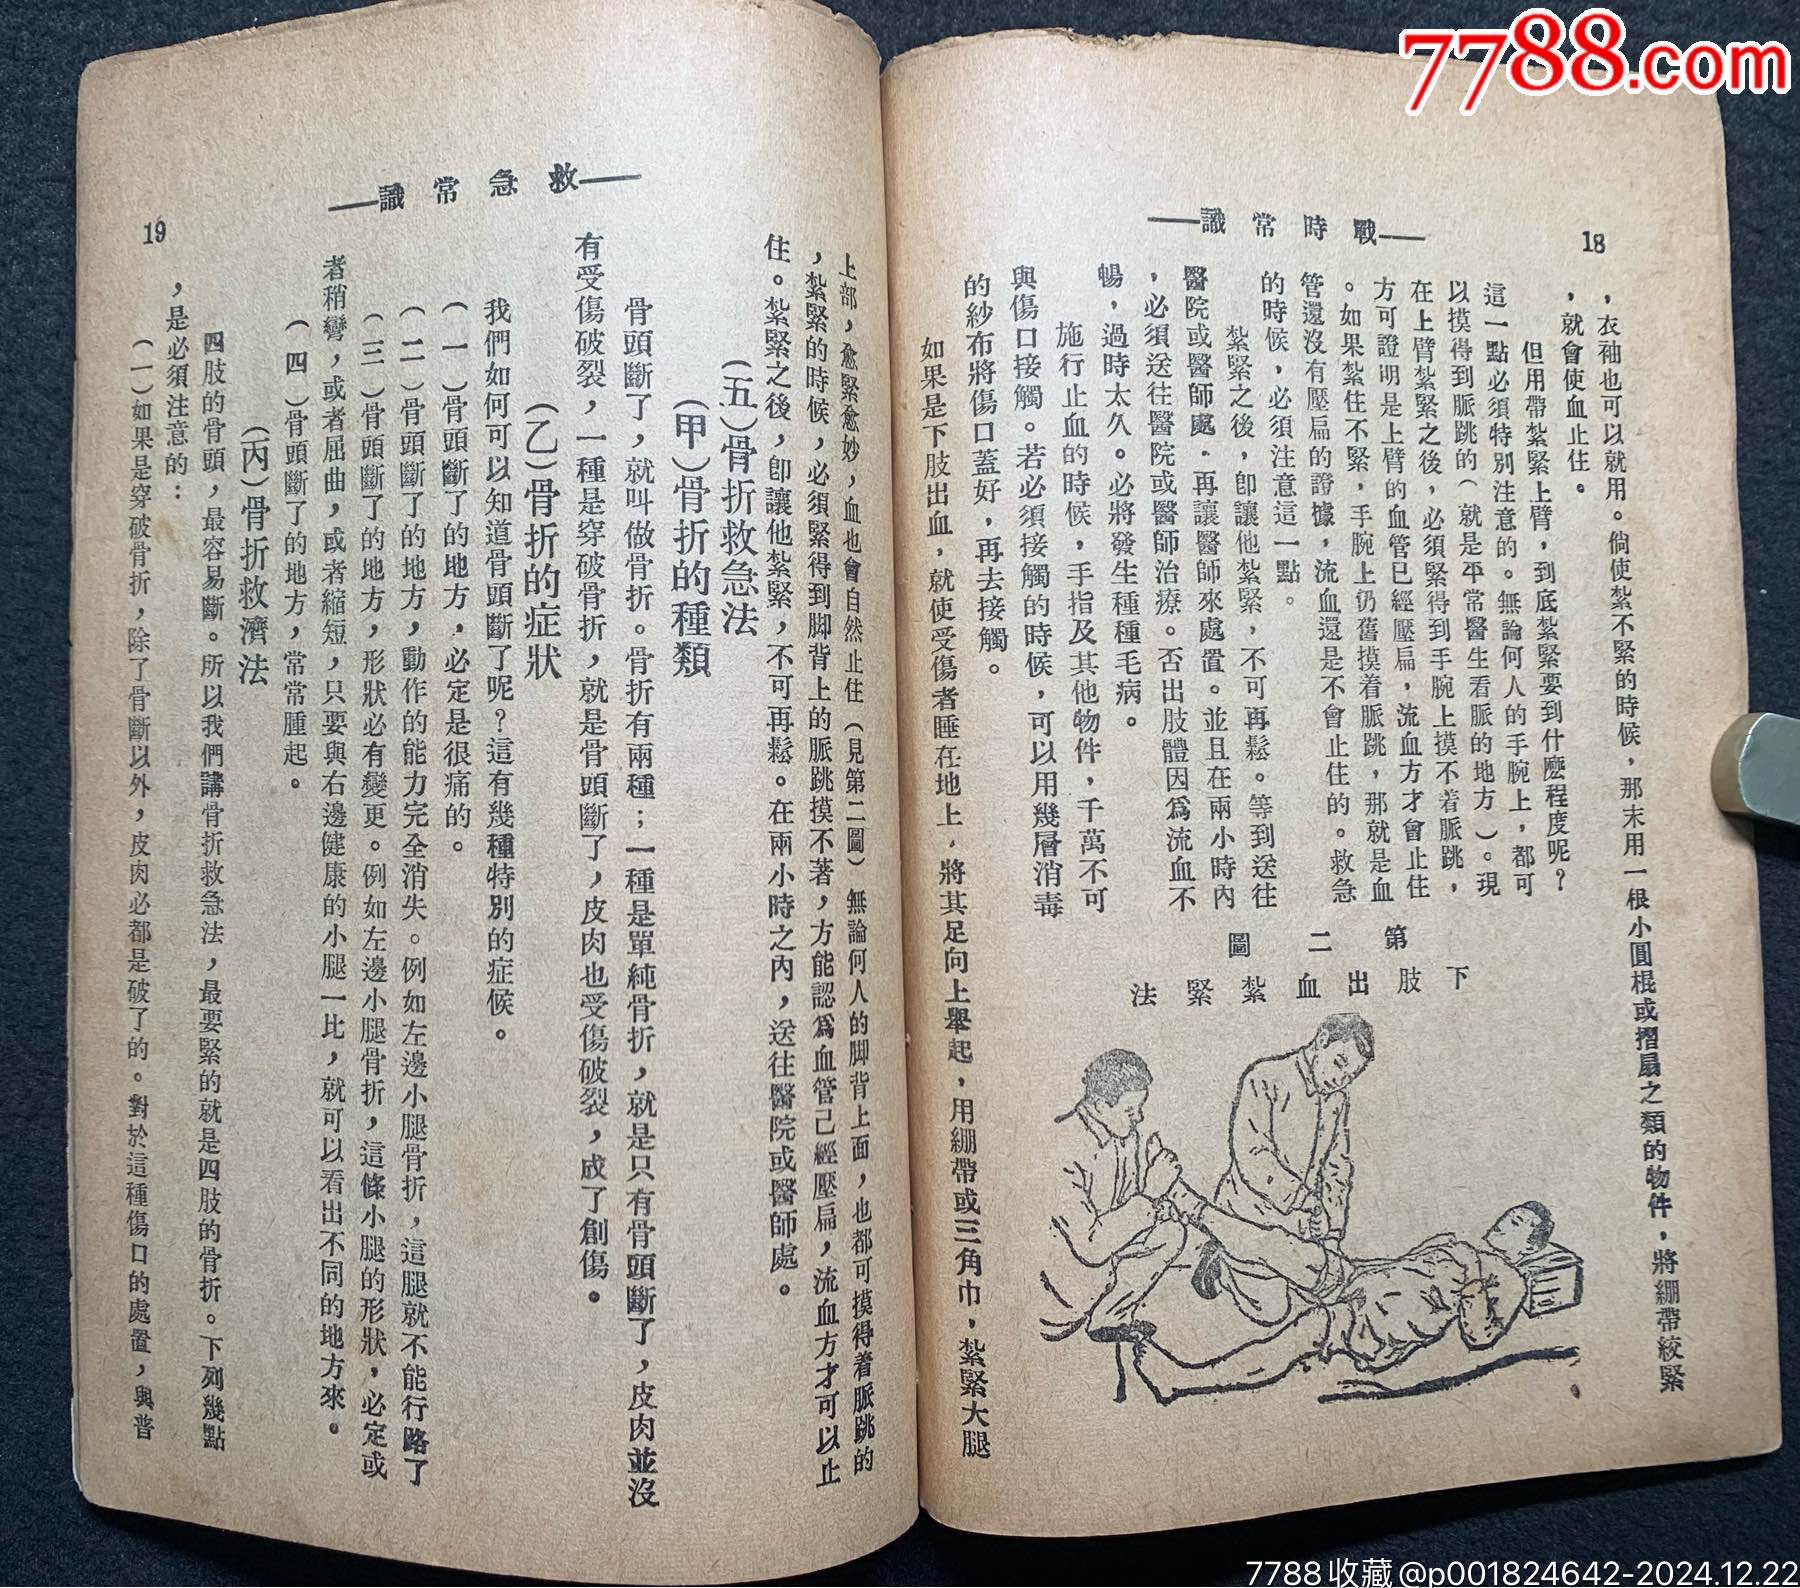 7788.com
18
——戰時常識——
，衣袖也可以就用。倘使紮不緊的時候，那末用一根小圓棍或摺扇之類的物件，將綳帶絞緊
，就會使血止住。
但用帶紮緊上臂，到底紮緊要到什麼程度呢？
這一點必須特別注意的。無論何人的手腕上，都可
以摸得到脈跳的（就是平常醫生看脈的地方）。現
在上臂紮緊之後，必須緊得到手腕上摸不着脈跳，
方可證明是上臂的血管已經壓扁，流血方才會止住
。如果紮住不緊，手腕上仍舊摸着脈跳，那就是血
管還沒有壓扁的證據，流血還是不會止住的。救急
的時候，必須注意這一點。
紮緊之後，卽讓他紮緊，不可再鬆。等到送往
醫院或醫師處，再讓醫師來處置。並且在兩小時內
，必須送往醫院或醫師治療。否出肢體因爲流血不
暢，過時太久。必將發生種種毛病。
施行止血的時候，手指及其他物件，千萬不可
與傷口接觸。若必須接觸的時候，可以用幾層消毒
的紗布將傷口蓋好，再去接觸。
第二圖
下肢出血紮緊法
如果是下肢出血，就使受傷者睡在地上，將其足向上舉起，用綳帶或三角巾，紮緊大腿
——救急常識——
19
上部，愈緊愈妙，血也會自然止住（見第二圖）無論何人的脚背上面，也都可摸得着脈跳的
，紮緊的時候，必須緊得到脚背上的脈跳摸不著，方能認爲血管己經壓扁，流血方才可以止
住。紮緊之後，卽讓他紮緊，不可再鬆。在兩小時之內，送往醫院或醫師處。
(五)骨折救急法
(甲)骨折的種類
骨頭斷了，就叫做骨折。骨折有兩種；一種是單純骨折，就是只有骨頭斷了，皮肉並沒
有受傷破裂，一種是穿破骨折，就是骨頭斷了，皮肉也受傷破裂，成了創傷。
(乙)骨折的症狀
我們如何可以知道骨頭斷了呢？這有幾種特別的症候。
（一）骨頭斷了的地方，必定是很痛的。
（二）骨頭斷了的地方，動作的能力完全消失。例如左邊小腿骨折，這腿就不能行路了
（三）骨頭斷了的地方，形狀必有變更。例如左邊小腿骨折，這條小腿的形狀，必定或
者稍彎，或者屈曲，或者縮短，只要與右邊健康的小腿一比，就可以看出不同的地方來。
（四）骨頭斷了的地方，常常腫起。
(丙)骨折救濟法
四肢的骨頭，最容易斷。所以我們講骨折救急法，最要緊的就是四肢的骨折。下列幾點
，是必須注意的：
（一）如果是穿破骨折，除了骨斷以外，皮肉必都是破了的。對於這種傷口的處置，與普
7788收藏@p001824642-2024.12.22